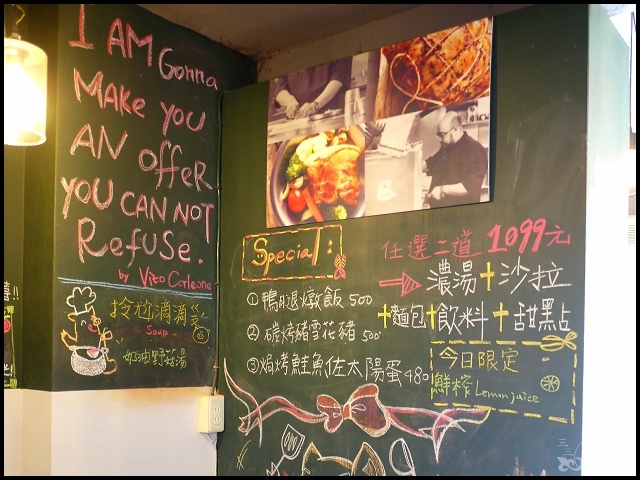 I AM Gonna
MAKE you
AN OFFER
YOU CAN NOT
Refuse.
by Vito Corleone
拎尬滴滴
Soup
奶油野菇湯
Special:
① 鴨腿燉飯 500
② 碳烤豬雪花豬 500
③ 焗烤鮭魚佐太陽蛋 480
任選二道 1099元
濃湯+沙拉
+麵包+飲料+甜點
今日限定
鮮榨 Lemon juice